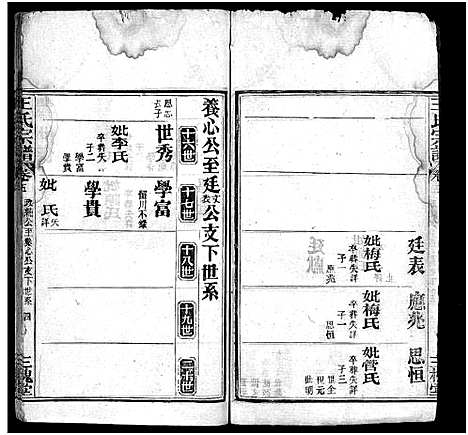 王氏宗譜
廷表
妣梅氏
卒葬失詳
子一
應兆
應兆
妣梅氏
卒葬失詳
子一
思恒
思恒
妣管氏
卒葬失詳
子三
養心公至廷表公支下世系
十六世
十七世
十八世
十九世
二十世
思志
長子
世秀
妣李氏
卒葬失詳
子二
學富
學貴
學富
留川不錄
學貴
妣氏失詳
王氏宗譜
卷五
公支下世系
四
三槐堂